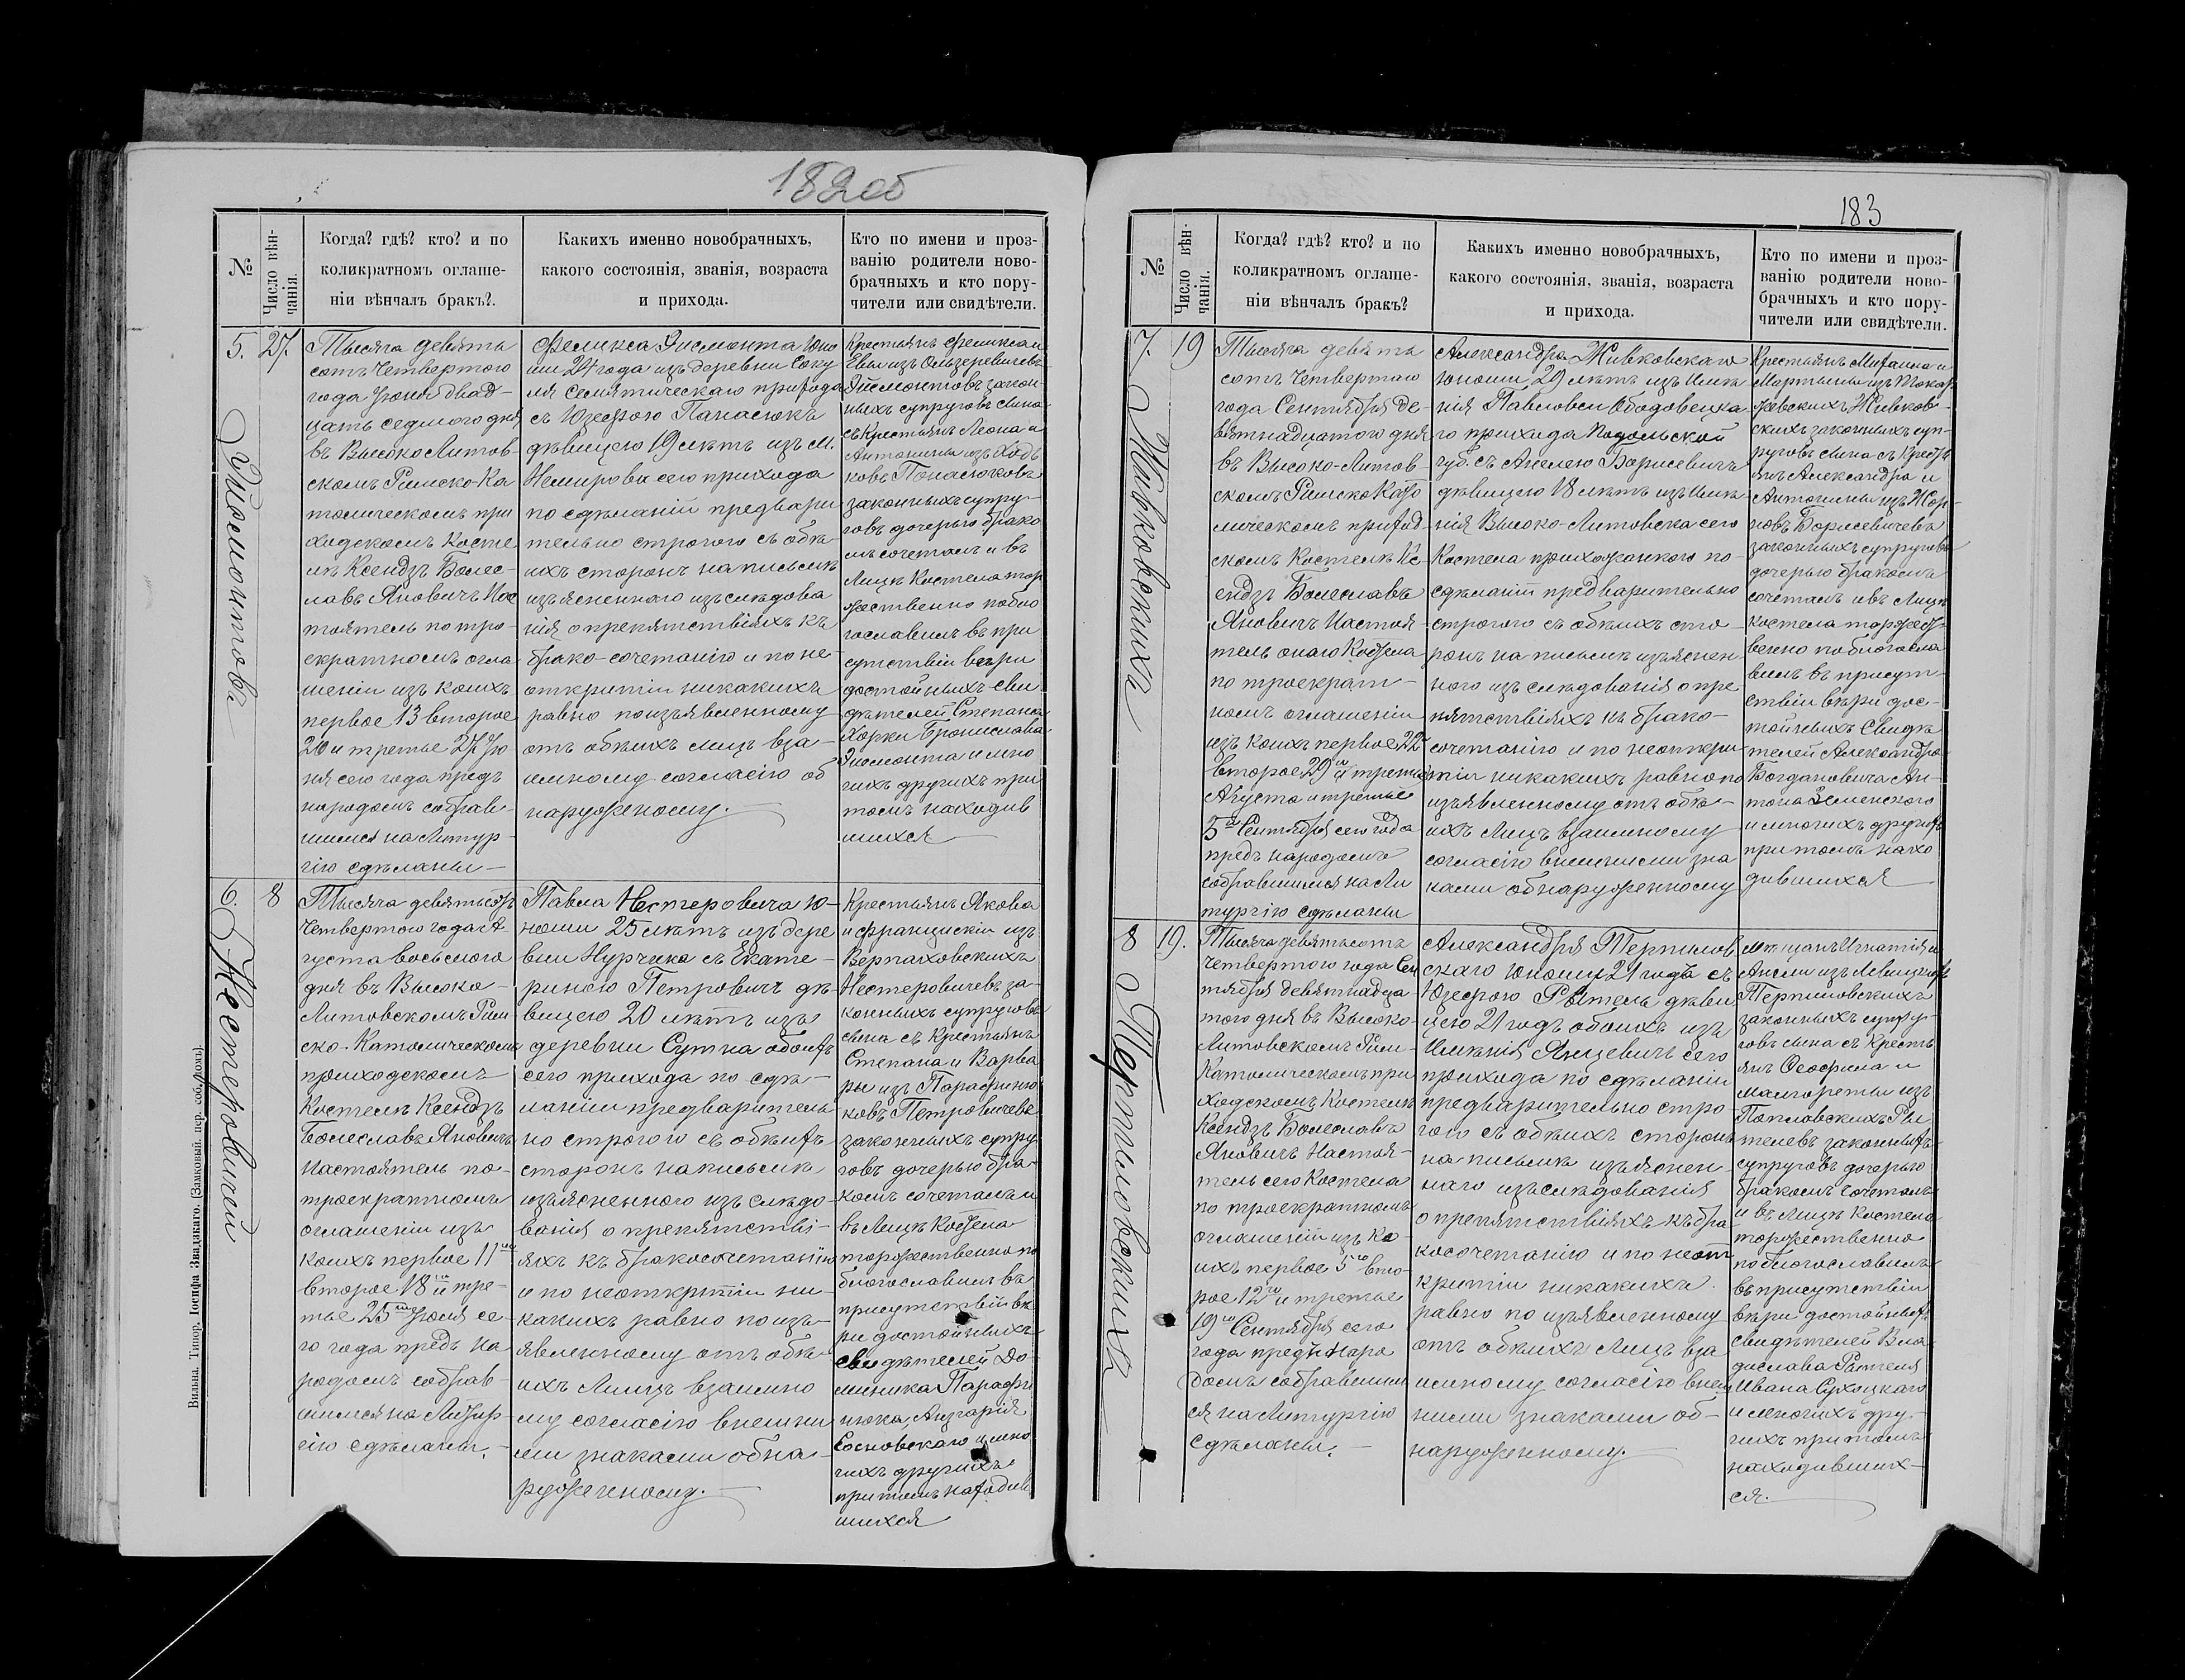 182об
№
Число вѣн-
чанія.
Когда? гдѣ? кто? и по
коликратномъ оглаше-
ніи вѣнчалъ бракъ?.
Какихъ именно новобрачныхъ,
какого состоянія, званія, возраста
и прихода.
Кто по имени и проз-
ванію родители ново-
брачныхъ и кто пору-
чители или свидѣтели.
5.
27.
Эйсмонтовъ
Тысяча девять
сотъ Четвертого
года Іюня двад-
цать седмого дня
въ Высоко Литов-
скомъ Римско-Ка
толическомъ при
ходскомъ Косте
лѣ Ксендзъ Болес-
лавъ Яновичъ Нас
тоятель по тро-
екратномъ огла
шеніи изъ коихъ
первое 13 второе
20 и третье 27 Iю
ня сего года предъ
народомъ собрав-
шимся на Литур-
гію сдѣланы —
Феликса Эисмонта Юно
ши 24 года изъ деревни Соку
ля Семятическаго прихода
съ Юзефою Панасюкъ
дѣвицею 19 лѣтъ изъ м.
Немирова сего прихода
по сдѣланіи предвари
тельно строгого съ обѣ-
ихъ сторонъ на письмѣ
изъясненного изъслѣдова
нія о препятствіяхъ къ
брако-сочетанію и по не-
откритіи никакихъ
равно по изъявленному
отъ обѣихъ лицъ вза-
имному согласію об
наруженому. —
Крестьянъ Феликса и
Евы изъ Ользеревичевъ
Эйсмонтовъ закон
ныхъ супруговъ сина
съ Крестьянъ Леона и
Антонины изъ Ходь
ковъ Понасюковъ
законныхъ супру-
говъ дочерью брако
мъ сочеталъ и въ
Лицѣ Костела тор
жественно побло
гославилъ въ при
сутствіи вѣри
достойныхъ сви
дѣтелей Степана
Хорки Бронислава
Эйсмонта и мно
гихъ другихъ при
томъ находив
шихся
6.
8
Нестеровичъ
Тысяча девятьсотъ
Четвертого года Ав-
густа восьмого
дня въ Высоко-
Литовскомъ Рим
ско-Католическомъ
приходскомъ
Костелѣ Ксендзъ
Болеславъ Яновичъ
Настоятель по-
троекратномъ
оглашеніи изъ
коихъ первое 11го
второе 18го и тре-
тье 25го Іюля се-
го года предъ на
родомъ собрав-
шимся на Литур-
гію сдѣланы. —
Павла Нестеровича Ю-
ноши 25 лѣтъ изъ дере
вни Нурчика съ Екате-
риною Петровичъ дѣ-
вицею 20 лѣтъ изъ
деревни Сутна обоихъ
сего прихода по сдѣ-
ланіи предваритель
но строгого съ обѣихъ
сторонъ на письмѣ
изъясненного изъ слѣдо-
ванія о препятстві-
яхъ къ бракосочетанію
и по неоткрытіи ни-
какихъ равно по изъ-
явленному отъ обѣ-
ихъ Лицъ взаимно
му согласію внешни
ми знаками обна-
руженному. —
Крестьянъ Якова
и Францискіи изъ
Верпаховскихъ
Нестеровичевъ за-
конныхъ супруговъ
сына съ Крестьянъ
Степана и Варва
ры изъ Парафиню
ковъ Петровичевъ
законныхъ супру
говъ дочерью бра-
комъ сочеталъ и
въ Лицѣ Костела
торжественно по
благославилъ въ
присутствіи вѣ
ри достойныхъ
свидѣтелей До-
миника Парафи
нюка, Ангарія
Сосновскаго и мно
гихъ другихъ
притомъ находив
шихся
Вильна. Типогр. Іосифа Завадзкаго. (Замковый. пер. соб. домъ).
183
№
Число вѣн-
чанія.
Когда? гдѣ? кто? и по
коликратномъ оглаше-
ніи вѣнчалъ бракъ?
Какихъ именно новобрачныхъ,
какого состоянія, званія, возраста
и прихода.
Кто по имени и проз-
ванію родители ново-
брачныхъ и кто пору-
чители или свидѣтели.
7.
19
Живковскихъ
Тысяча девять
сотъ Четвертого
года Сентября де-
вятнадцатого дня
въ Высоко-Литов-
скомъ Римско Като
лическомъ приход-
скомъ Костелѣ Кс-
ендзъ Болеславъ
Яновичъ Настоя-
тель онаго Костела
по троекрат-
номъ оглашеніи
изъ коихъ первое 22
второе 29го и третье
Августа и третье
5го Сентября сего года
предъ народомъ
собравшимся на Ли
тургію сдѣланы
Александра Живковскаго
Юноши 29 лѣтъ изъ имѣ
нія Павловки Ободовецка
го прихода Подольской
губ. съ Анелею Борисевичъ
дѣвицею 18 лѣтъ изъ имѣ
нія Высоко-Литовска сего
Костела прихожанкою по-
сдѣланіи предварительно
строгого съ обѣихъ сто-
ронъ на письмѣ изъяснен-
ного изъ слѣдованія о пре
пятствіяхъ къ брако-
сочетанію и по неоткри
тіи никакихъ равно по
изъявленному отъ обѣ-
ихъ Лицъ взаимному
согласію внешними зна
ками обнаруженному
Крестьянъ Михаила и
Мартины изъ Токар
жевскихъ Живков-
скихъ законныхъ суп-
руговъ сына съ Кресть
янъ Александра и
Антонины изъ Жор-
новъ Борисевичевъ
законныхъ супруговъ
дочерью бракомъ
сочеталъ и въ Лицѣ
костела торжест-
венно поблагосла
вилъ въ присут-
ствіи вѣри дос-
тойныхъ Свидѣ
телей Александра
Богдановича Ан-
тона Зеленского
и многихъ другихъ
притомъ нахо
дившихся
8
19.
Терпиловскихъ
Тысяча девятьсотъ
Четвертого года Сен
тября девятнадца
того дня въ Высоко-
Литовскомъ Рим-
Католическомъ при
ходскомъ Костелѣ
Ксендзъ Болеславъ
Яновичъ Настоя-
тель сего Костела
по троекратномъ
оглашеніи изъ ко
ихъ первое 5го вто-
рое 12го и третье
19го Сентября сего
года предъ наро
домъ собравшим
ся на Литургію
сдѣланы. —
Александра Терпилов
скаго Юношу 21 года съ
Юзефою Рытель дѣви
цею 21 годъ обоихъ изъ
Имѣнія Янцевичъ сего
прихода по сдѣланіи
предварительно стро-
гого съ обѣихъ сторонъ
на письмѣ изъяснен-
наго изъслѣдованія
о препятствіяхъ къ бра
косочетанію и по неот
критіи никакихъ
равно по изъявленному
отъ обѣихъ Лицъ вза
имному согласію внеш
ними знаками об-
наруженному. —
мѣщанъ Игнатія и
Анели изъ
Терпиловскихъ
законныхъ супру-
говъ сына съ Кресть
янъ Феофила и
малгореты изъ
Поплавскихъ Ри
телевъ законныхъ
супруговъ дочерью
бракомъ сочеталъ
и въ Лицѣ костела
торжественно
поблогославилъ
въ присутствіи
вѣри достойныхъ
свидѣтелей Вла
дислава Рытеля
Ивана Сухоцкаго
и многихъ дру-
гихъ притомъ
находивших-
ся.